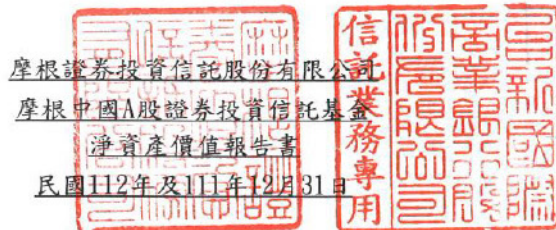 摩根證券投資信託股份有限公司
摩根中國A股證券投資信託基金
淨資產價值報告書
民國112年及111年12月31日
信託業務專用